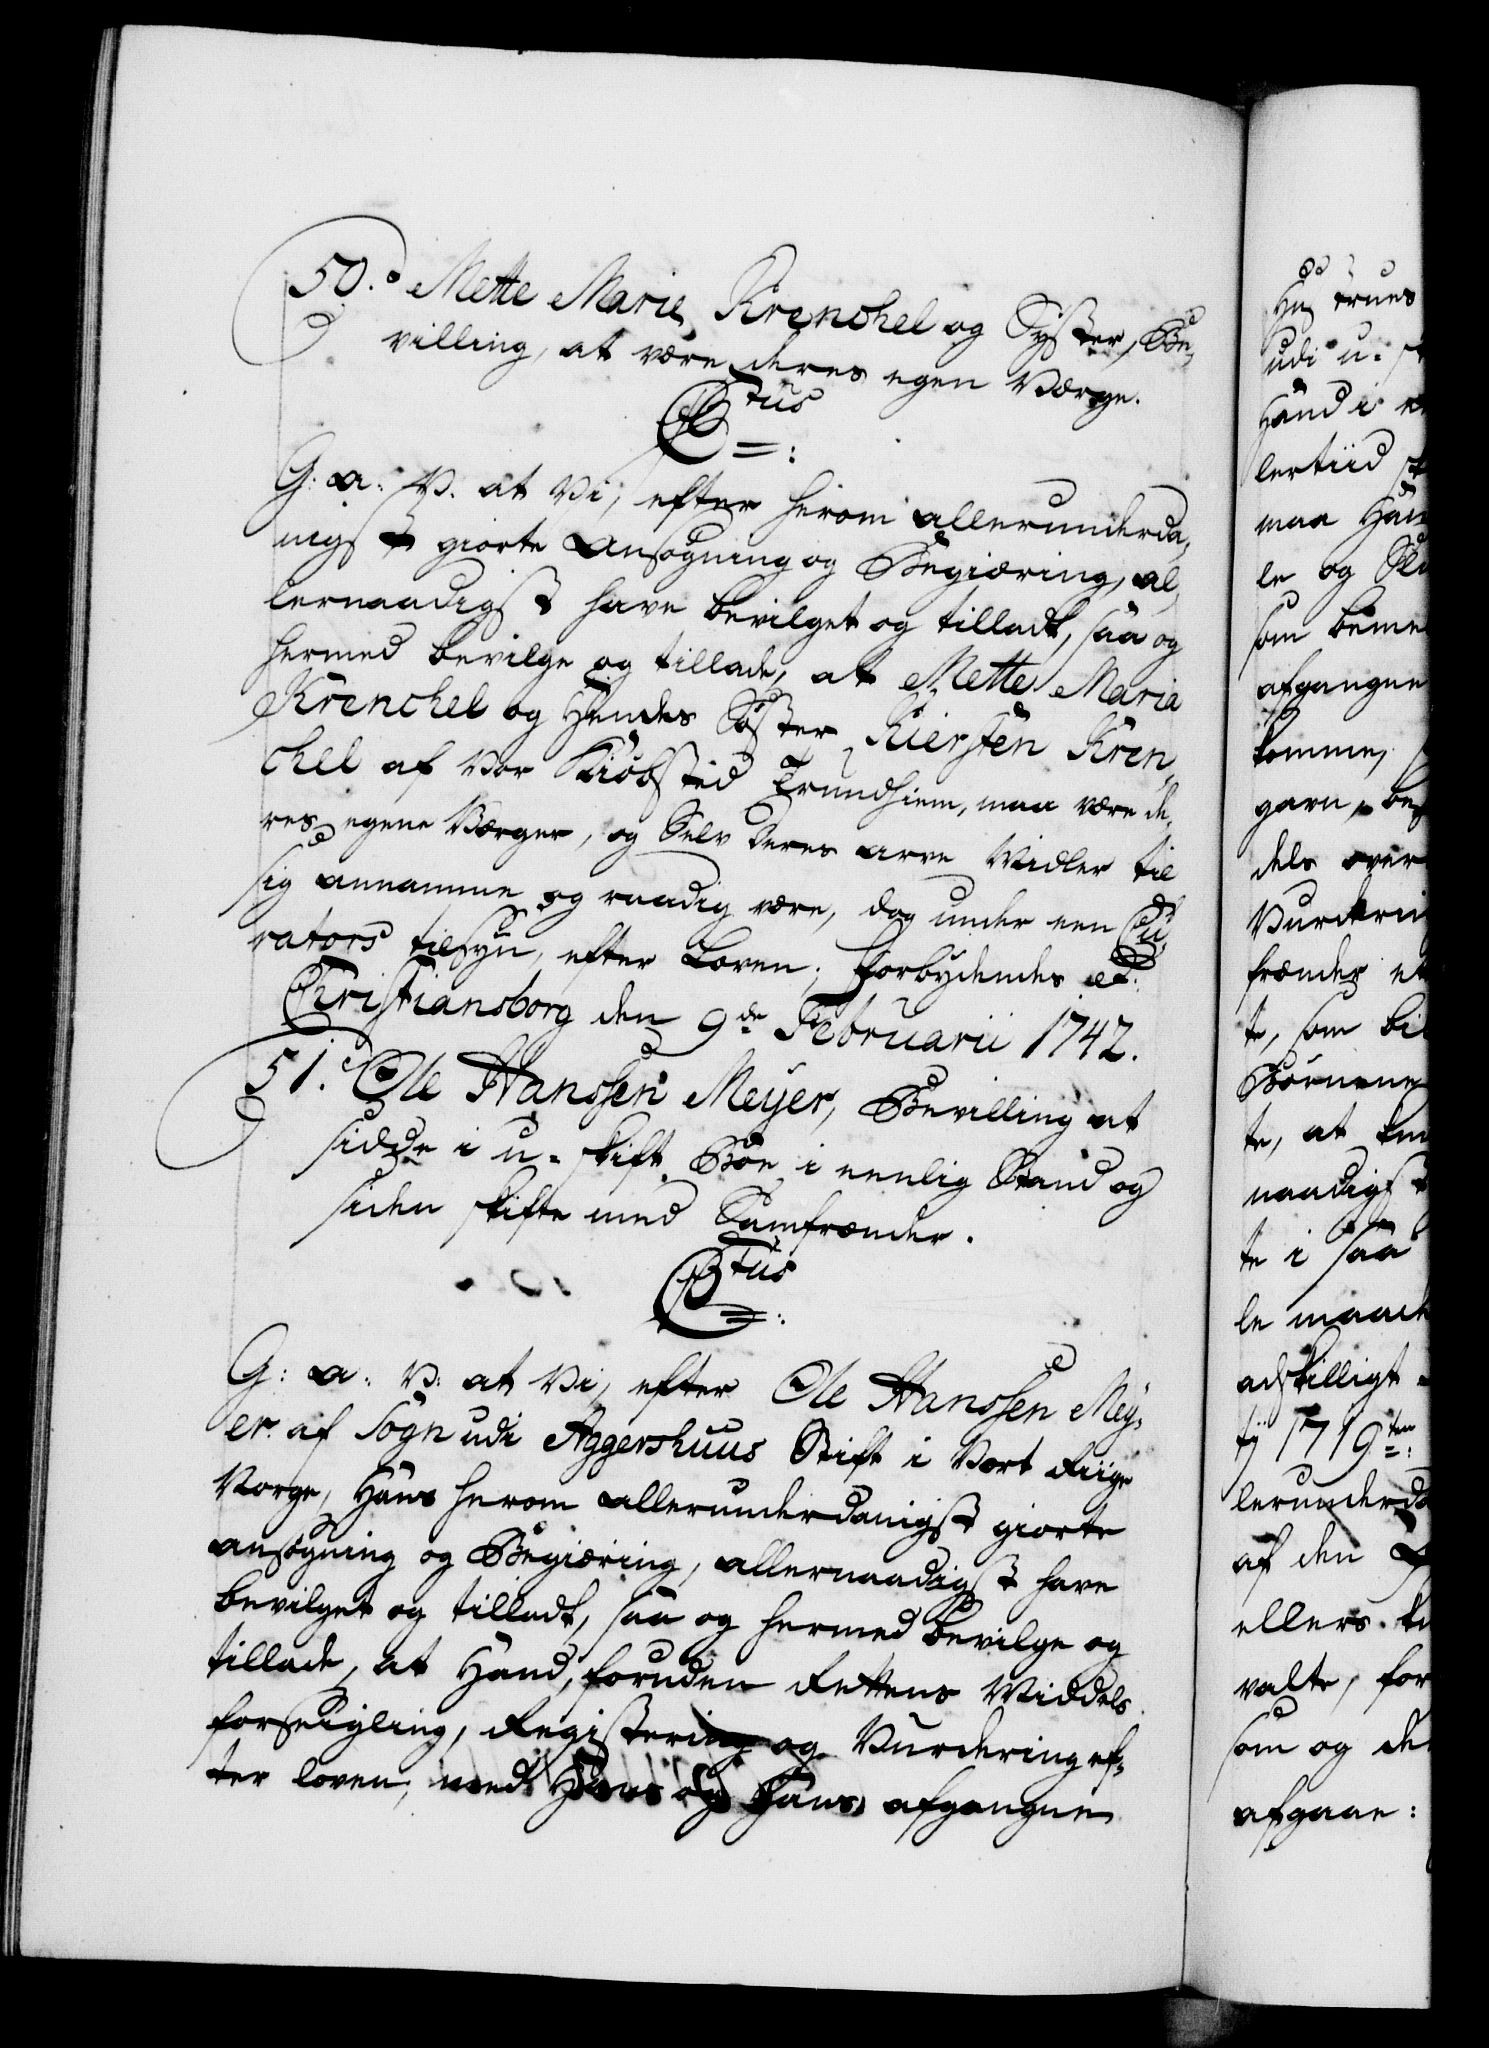 50. Mette Marie Krenchel og Syster, Be,
villing, at være deres egen Værge.
CVtus
G: a: V. at Vi, efter herom allerunderda,
nigst giorte Ansøgning og Begiæring, al,
lernaadigst have bevilget og tilladt, saa og
hermed bevilge og tillade, at Mette Marie
Krenchel og Hendes Søster Kiersten Kren,
chel af Vor Kiøbsted Trundhiem, maa være de,
res egene Værger, og Selv deres arve Midler til
sig annamme og raadig være, dog under een Cu,
rators tilsyn, efter Loven; Forbydendes etc.
Christiansborg den 9de Februarii 1742.
51. Ole Hanssen Meyer, Bevilling at
sidde i u-skift Boe i eenlig Stand og
siden skifte med Samfrænder.
CVtus
G: a: V: at Vi, efter Ole Hanssen Mey,
er af Sogn udi Aggershuus Stift i Vort Riige
Norge, Hans herom allerunderdanigst giorte
ansøgning og Begiæring, allernaadigst have
bevilget og tilladt, saa og hermed bevilge og
tillade, at Hand, foruden Rettens Middels
forseigling, Registering og Vurdering ef,
ter loven, med Hans og Hans afgangne
Hustrues
udi u-
Hand i
lertiid
maa Han
le og
som
afgangne
komme,
gavn,
dels over
Vurderin
frænder
te, som
Børnene
te, at
naadigst
te i saa
le maade
adskilligt
ij 1719ten
lerunderda
af den
ellers
valte, for
som og de
afgaae: